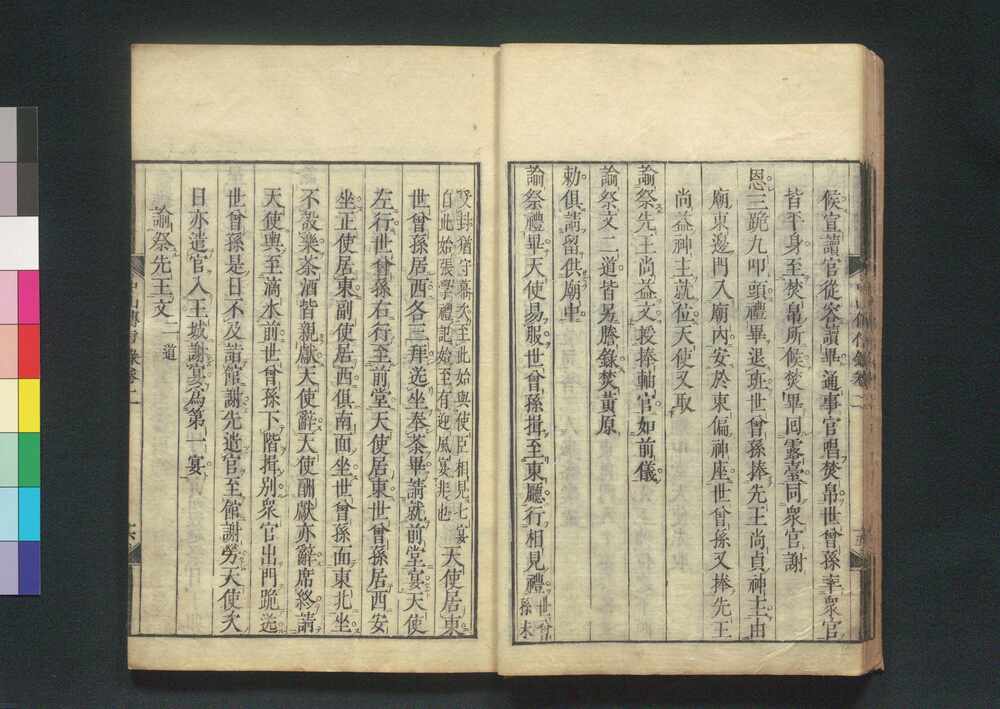 候宣讀官從容讀畢通事官唱焚帛世曾孫率衆官
皆平身至焚帛所候焚畢囘露臺同衆官謝
恩三跪九叩頭禮畢退班世曾孫捧先王尚貞神主由
廟東邊門入廟內安於東偏神座世曾孫又捧先王
尚益神主就位天使又取
諭祭先王尚益文授捧軸官如前儀
諭祭文二道皆另謄錄焚黃原
勅俱請留供廟中
諭祭禮畢天使易服世曾孫揖至東廳行相見禮
世曾
孫未
中山傳信錄卷二
五
受封猶守幕次至此始與使臣相見七宴
自此始張學禮記始至有迎風宴非也
天使居東
世曾孫居西各三拜送坐奉茶畢請就前堂宴天使
左行世曾孫右行至前堂天使居東世曾孫居西安
坐正使居東副使居西俱南面坐世曾孫面東北坐
不設樂茶酒皆親獻天使辭天使酬獻亦辭席終請
天使輿至滴水前世曾孫下階揖别衆官出門跪送
世曾孫是日不及詣館謝先遣官至館謝勞天使次
日亦遣官入王城謝宴爲第一宴
諭祭先王文二道
中山傳信錄卷二
六